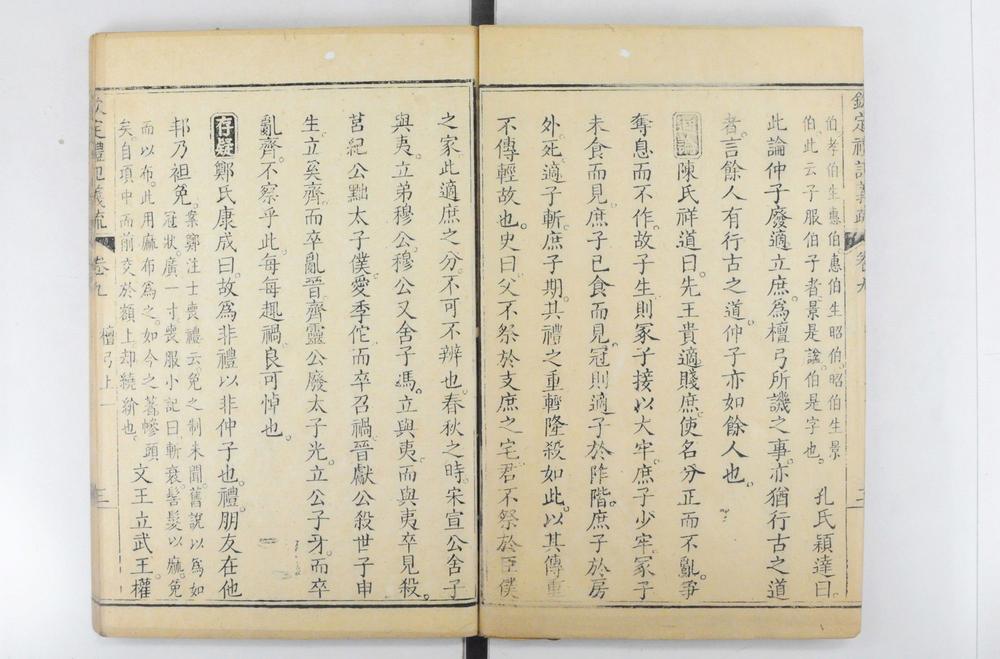 欽定禮記義疏 卷九 三
伯孝伯生惠伯惠伯生昭伯昭伯生景
伯此云子服伯子者景是諡伯是字也
孔氏穎達曰
此論仲子廢適立庶為檀弓所譏之事亦猶行古之道
者言餘人有行古之道仲子亦如餘人也
陳氏祥道曰先王貴適賤庶使名分正而不亂爭
奪息而不作故子生則冢子接以大牢庶子少牢冢子
未食而見庶子已食而見冠則適子於阼階庶子於房
外死適子斬庶子期其禮之重輕隆殺如此以其傳重
不傳輕故也史曰父不祭於支庶之宅君不祭於臣僕
之家此適庶之分不可不辨也春秋之時宋宣公舍子
與夷立弟穆公穆公又舍子馮立與夷而與夷卒見殺
莒紀公黜太子僕愛季佗而卒召禍晉獻公殺世子申
生立奚齊而卒亂晉齊靈公廢太子光立公子牙而卒
亂齊不察乎此每每趣禍良可悼也
存疑 鄭氏康成曰故為非禮以非仲子也禮朋友在他
邦乃袒免
案鄭注士喪禮云免之制未聞舊說以為如
冠狀廣一寸喪服小記曰斬衰髺髮以麻免
而以布此用麻布為之如今之著幓頭
矣自項中而前交於額上却繞紒也
文王立武王權
欽定禮記義疏 卷九 檀弓上一 三